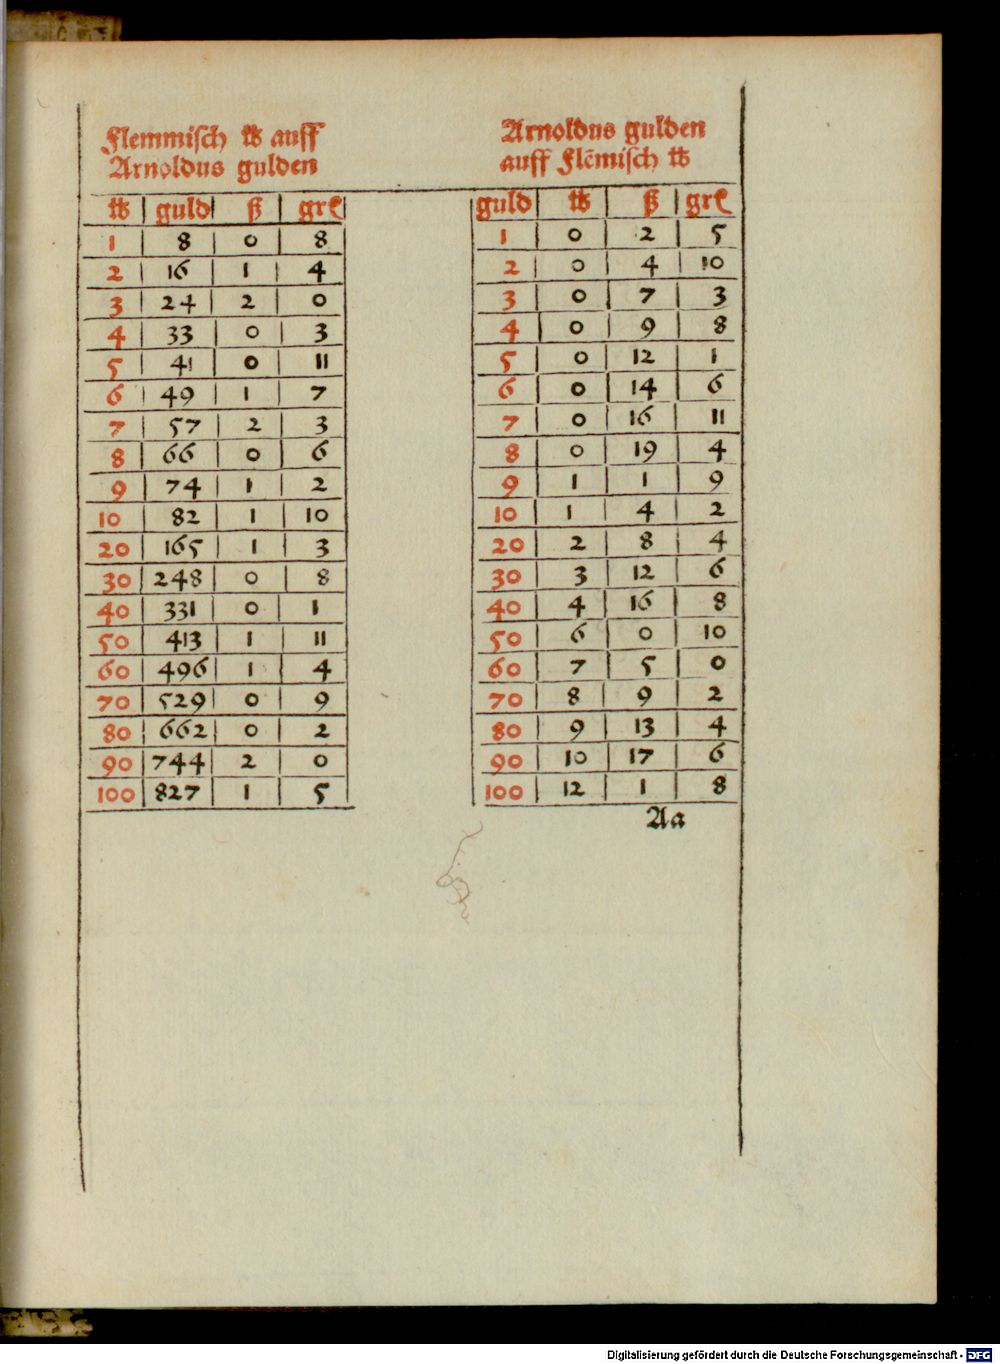 Flemmisch ℔ auff
Arnoldus gulden
℔ guld ß gr
1 8 0 8
2 16 1 4
3 24 2 0
4 33 0 3
5 41 0 11
6 49 1 7
7 57 2 3
8 66 0 6
9 74 1 2
10 82 1 10
20 165 1 3
30 248 0 8
40 331 0 1
50 413 1 11
60 496 1 4
70 529 0 9
80 662 0 2
90 744 2 0
100 827 1 5
Arnoldus gulden
auff Flēmisch ℔
guld ℔ ß gr
1 0 2 5
2 0 4 10
3 0 7 3
4 0 9 8
5 0 12 1
6 0 14 6
7 0 16 11
8 0 19 4
9 1 1 9
10 1 4 2
20 2 8 4
30 3 12 6
40 4 16 8
50 6 0 10
60 7 5 0
70 8 9 2
80 9 13 4
90 10 17 6
100 12 1 8
Aa
Digitalisierung gefördert durch die Deutsche Forschungsgemeinschaft - DFG